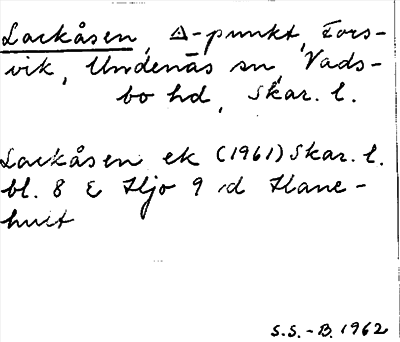 Lackåsen, △-punkt, Fors-
vik, Undenäs sn, Vads-
bo hd, Skar. l.
Lackåsen ek (1961) Skar. l.
bl. 8 E Hjo 9 d Hane-
hult
S.S.-B. 1962